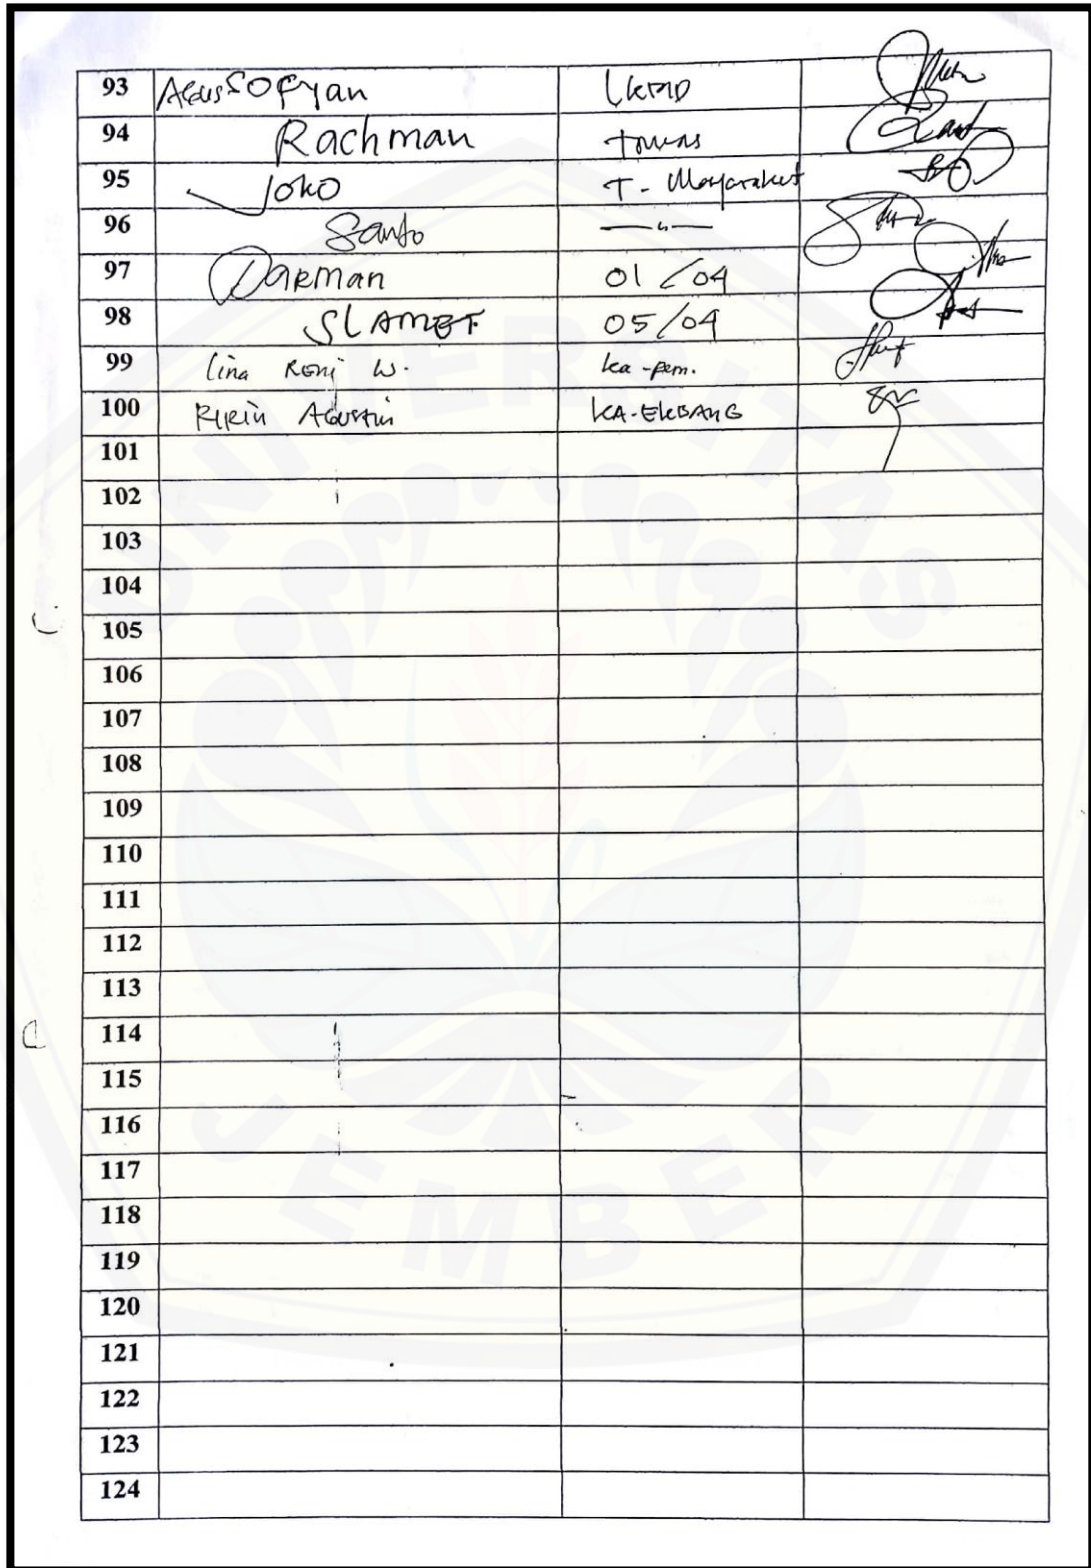 93 Agus Sofyan LKMD
94 Rachman tomas
95 Joko T - Masyarakat
96 Santo — u —
97 Darman 01/04
98 SLAMET 05/04
99 Lina Reni W. ka-pem.
100 Ririn Agustin KA-EKBANG
101
102
103
104
105
106
107
108
109
110
111
112
113
114
115
116
117
118
119
120
121
122
123
124
UNIVERSITAS
JEMBER